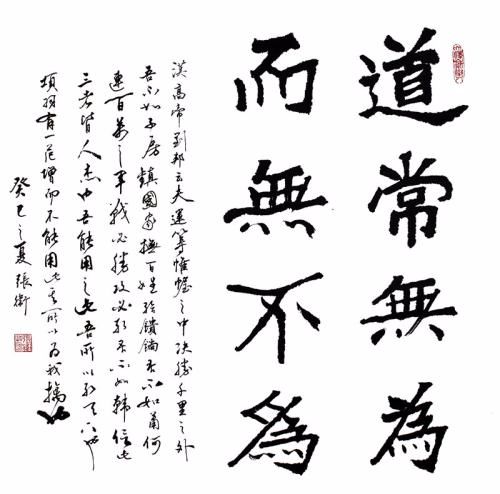 道常無為
而無不為
漢高帝劉邦云夫運籌帷幄之中决勝千里之外
吾不如子房鎮國家撫百姓給饋餉吾不如蕭何
連百萬之軍戰必勝攻必取吾不如韓信此
三者皆人杰也吾能用之此吾所以取天下也
項羽有一范增而不能用此其所以為我擒也
癸巳之夏張衛